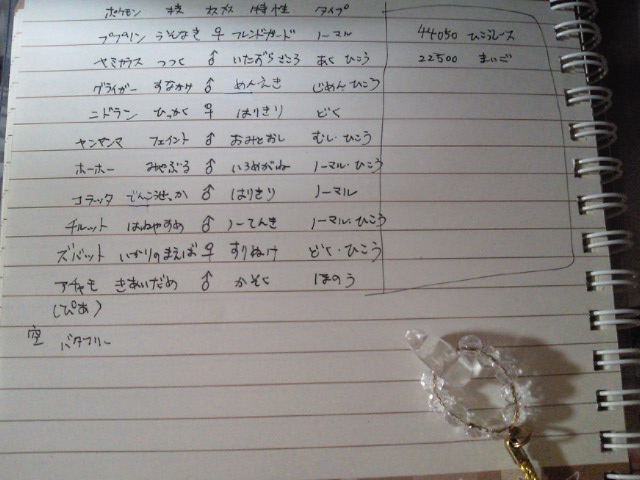 ポケモン 技 オスメス 特性 タイプ
ププリン うそなき ♀ フレンドガード ノーマル 44050 ひこうレース
ヤミカラス つつく ♂ いたずらごころ あく ひこう 22500 まいご
グライガー すなかけ ♂ めんえき じめん ひこう
ニドラン ひっかく ♀ はりきり どく
ヤンヤンマ フェイント ♂ おみとおし むし・ひこう
ホーホー みやぶる ♂ いろめがね ノーマル・ひこう
コラッタ でんこうせっか ♂ はりきり ノーマル
チルット はねやすめ ♂ ノーてんき ノーマル・ひこう
ズバット いかりのまえば ♀ すりぬけ どく・ひこう
アチャモ きあいだめ ♂ かそく ほのう
(ぴあ)
空 バタフリー